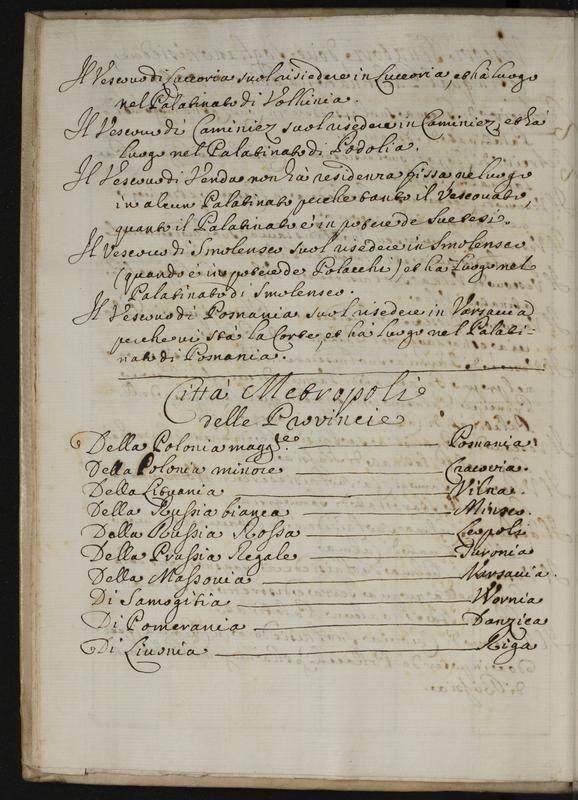 Il Vescouo di Luceoria suol risiedere in Luceoria, et há luogo
nel Palatinato di Volhinia.
Il Vescouo di Caminiez suol risedere in Caminiez, et há
luogo nel Palatinato di Podolia.
Il Vescouo di Venda non há residenza fissa, ne luogo
in alcun Palatinato perche tanto il Vescouato,
quanto il Palatinato é in potere de Suetesi.
Il Vescouo di Smolensco suol risedere in Smolensco
(quando é in potere de Polacchi) et há luogo nel
Palatinato di Smolensco.
Il Vescouo di Posnania suol risedere in Varsauia
perche ui stá la Corte, et há luogo nel Palati-
nato di Posnania.
Cittá Metropoli
delle Prouincie
Della Polonia magg.re Posnania
Della Polonia minore Cracovia.
Della Lituania Vilna.
Della Russia bianca Minsco.
Della Russia Rossa Leopoli
Della Prussia Regale Turonia
Della Massouia Varsauia.
Di Samogitia Wornia
Di Pomerania Danzica
Di Liuonia Riga